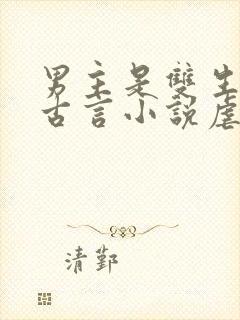 男主是雙生
古言小說虐
清鄞